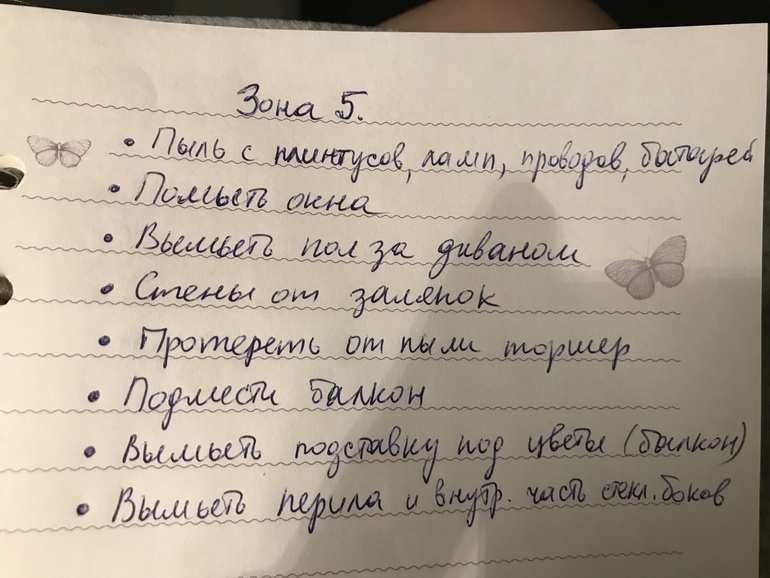 Зона 5.
• Пыль с плинтусов, ламп, проводов, батарей
• Помыть окна
• Вымыть пол за диваном
• Стены от заляпок
• Протереть от пыли торшер
• Подмести балкон
• Вымыть подставку под цветы (балкон)
• Вымыть перила и внутр. часть стекл. боков